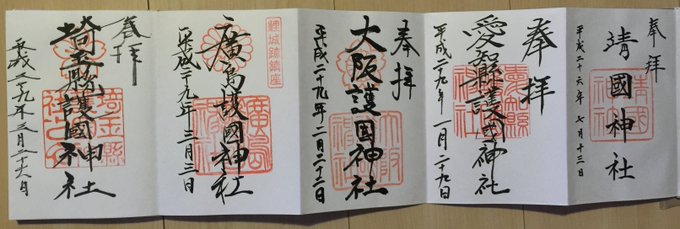 奉拝
靖國神社
平成二十六年 七月十三日
奉拝
愛知縣護國神社
平成二十九年 一月二十九日
奉拝
大阪護国神社
平成二十九年 二月二十二日
鯉城跡鎮座
廣島護國神社
平成二十九年 三月三日
奉拝
埼玉縣護國神社
平成二十九年三月二十六日